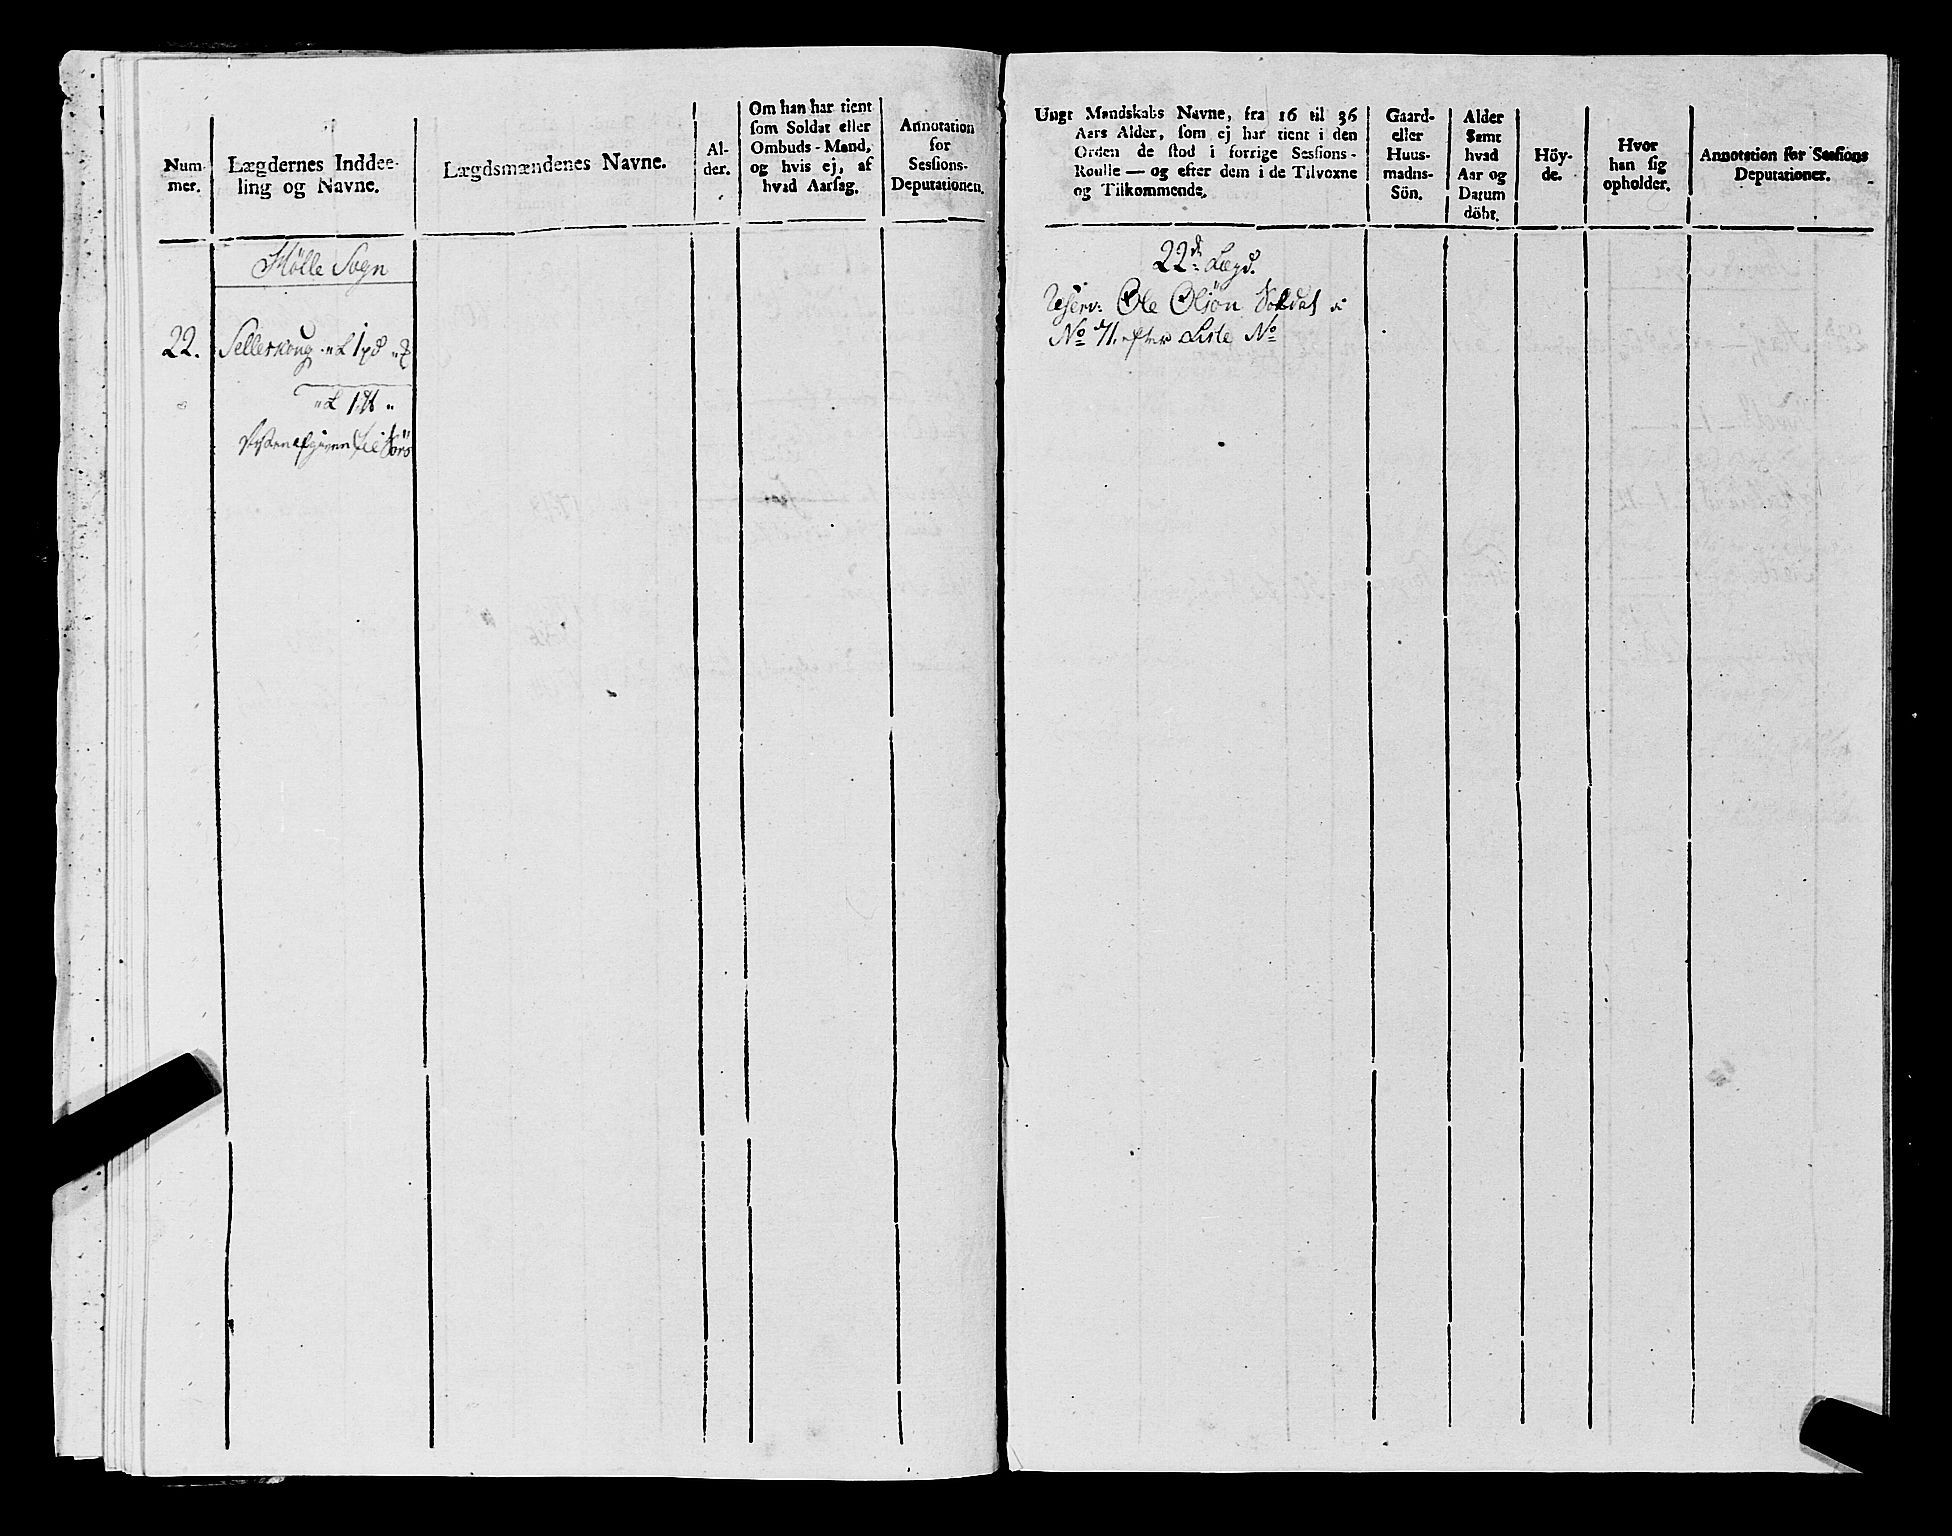 Num-
mer.
Lægdernes Inddee-
ling og Navne.
Lægdsmændenes Navne.
Al-
der.
Om han har tient
som Soldat eller
Ombuds-Mand,
og hvis ej, af
hvad Aarsag.
Annotation
for
Sessions-
Deputationen.
Hølle Sogn
22.
Sellerskoug
Ungt Mandskabs Navne, fra 16 til 36
Aars Alder, som ej har tient i den
Orden de stod i forrige Sessions-
Roulle — og efter dem i de Tilvoxne
og Tilkommende.
Gaard-
eller
Huus-
madns-
Sön.
Alder
Samt
hvad
Aar og
Datum
döbt.
Höy-
de.
Hvor
han sig
opholder.
Annotation for Sessions
Deputationer.
22de Lægd.
Reserv: Ole Olsön Soldat i
No 71. efter Liste No